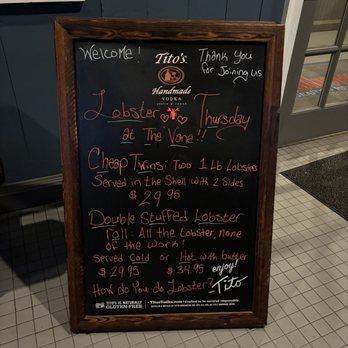 Welcome!
Thank you
for Joining us
Tito's
Handmade
VODKA
AUSTIN ★ TEXAS
Lobster Thursday
at The Vane!!
Cheap Twins: Two 1 Lb Lobsters
Served in the Shell with 2 Sides
$ 29.95
Double Stuffed Lobster
roll: All the Lobster, none
of the work!
Served Cold or Hot with butter
$ 29.95 $ 34.95 enjoy!
How do You do Lobster? Tito
TITO'S IS NATURALLY
GLUTEN-FREE
TitosVodka.com • Crafted to be savored responsibly.